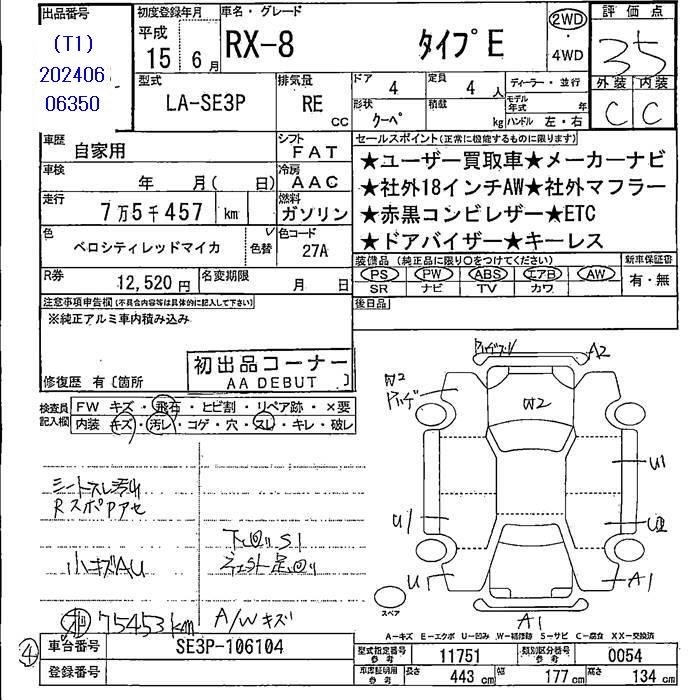 出品番号
(T1)
202406
06350
初度登録年月
平成
15年 6月
車名・グレード
RX-8 タイプE
2WD
・
4WD
評価点
35
外装 内装
C C
型式
LA-SE3P
排気量
RE cc
ドア 4
定員 4人
形状 クーペ
積載 kg
ディーラー・並行
モデル年式 年
ハンドル 左・右
車歴
自家用
シフト
FAT
車検
年 月( 日)
冷房
AAC
走行
7万5千457 km
燃料
ガソリン
色
ベロシティレッドマイカ
色替
色コード
27A
R券
12,520円
名変期限
月 日
セールスポイント(正常に機能するものに限ります)
★ユーザー買取車★メーカーナビ
★社外18インチAW★社外マフラー
★赤黒コンビレザー★ETC
★ドアバイザー★キーレス
装備品(純正品に限り○をつけてください)
PS PW ABS エアB AW
SR ナビ TV カワ
新車保証書
有・無
後日品
注意事項申告欄(不具合内容等は具体的に記入して下さい)
※純正アルミ車内積み込み
初出品コーナー
AA DEBUT
修復歴 有〔箇所 〕
検査員記入欄
FW キズ・飛石・ヒビ割・リペア跡・×要
内装 キズ・汚レ・コゲ・穴・スレ・キレ・破レ
シートスレ汚れ
RスポPアセ
下回りS1
小キズAU
75453km
A/Wキズ
A2
W2
ハゲ
W2
U1
U1
U2
U1
A1
A1
スペア
A-キズ E-エクボ U-凹み W-補修跡 S-サビ C-腐食 XX-交換済
④
車台番号 SE3P-106104
登録番号
型式指定番号 参考 11751
類別区分番号 参考 0054
車庫証明用 参考 長さ 443cm 幅 177cm 高さ 134cm